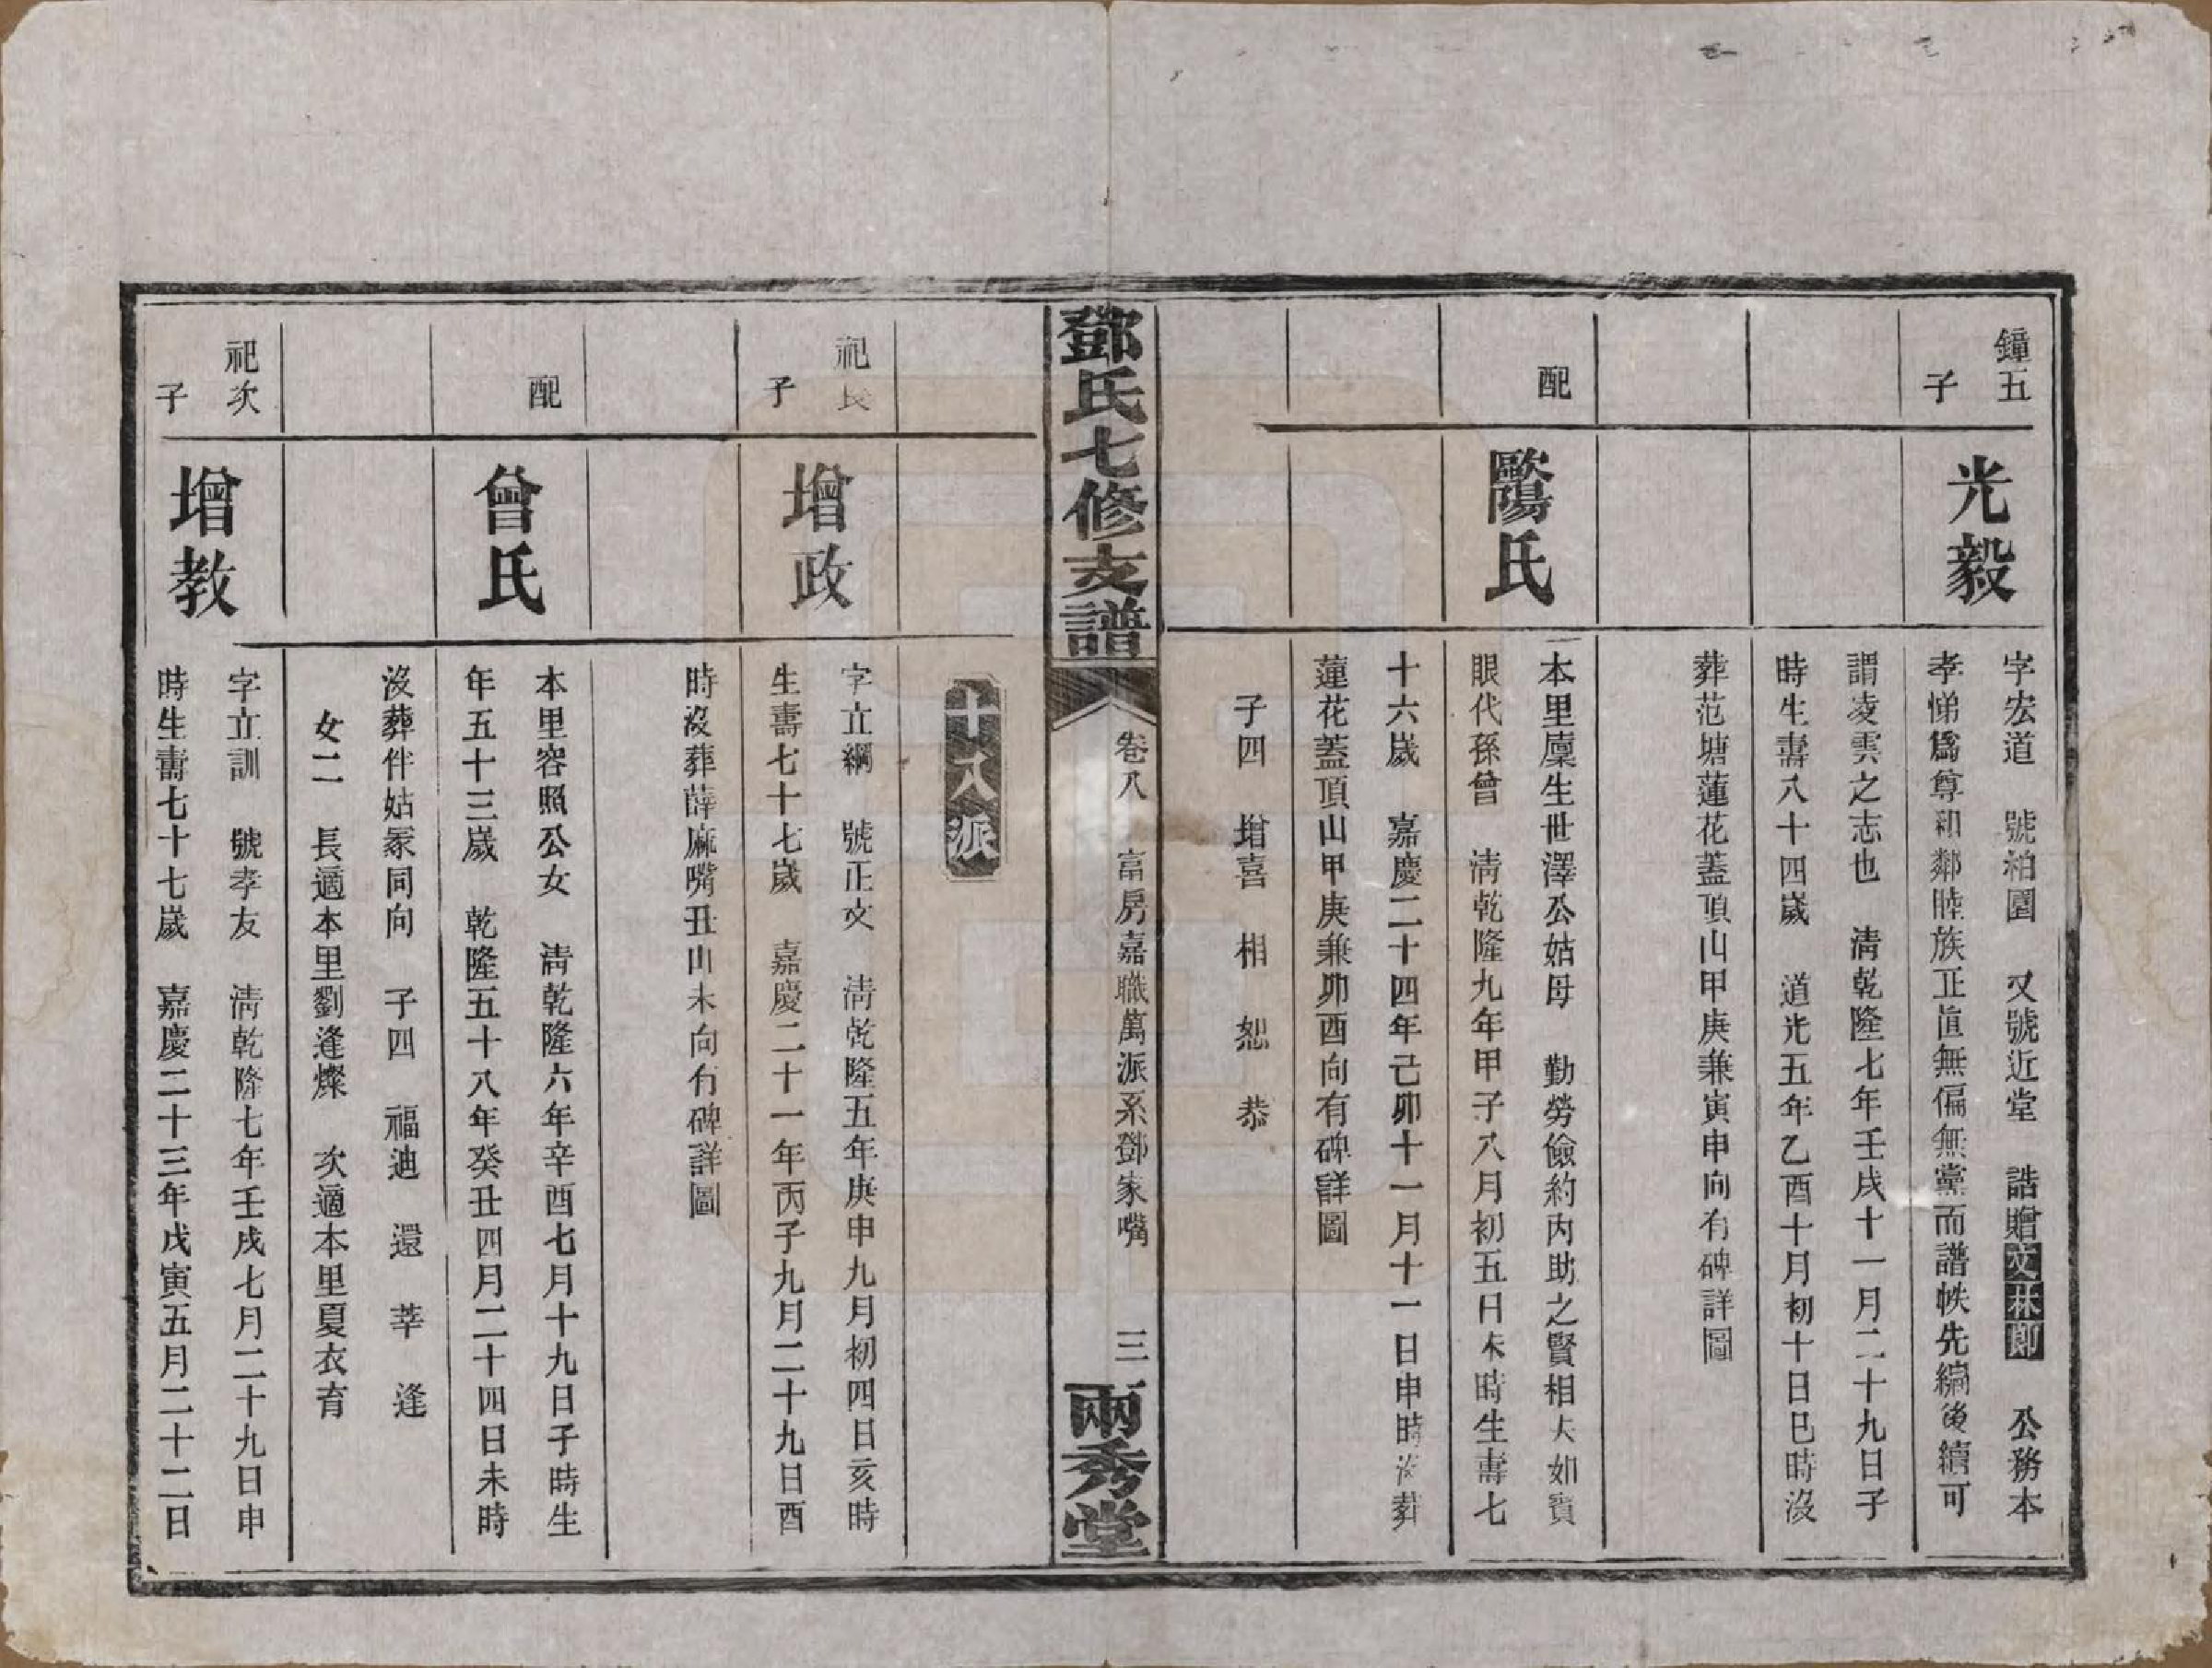 鐘五
子
光毅
字宏道　號柏園　又號近堂　誥贈文林郎　公務本
孝悌爲尊和鄰睦族正直無偏無黨而譜帙先編後續可
謂凌雲之志也　淸乾隆七年壬戌十一月二十九日子
時生壽八十四歲　道光五年乙酉十月初十日巳時沒
葬范塘蓮花蓋頂山甲庚兼寅申向有碑詳圖
配
歐陽氏
本里廩生世澤公姑母　勤勞儉約內助之賢相夫如賓
眼代孫曾　淸乾隆九年甲子八月初五日未時生壽七
十六歲　嘉慶二十四年己卯十一月十一日申時沒葬
蓮花蓋頂山甲庚兼卯酉向有碑詳圖
子四　增喜　相　恕　恭
鄧氏七修支譜
卷八　富房嘉職萬派系鄧家嘴　三
兩秀堂
十八派
祀長
子
增政
字立綱　號正文　淸乾隆五年庚申九月初四日亥時
生壽七十七歲　嘉慶二十一年丙子九月二十九日酉
時沒葬薛麻嘴丑山未向有碑詳圖
配
曾氏
本里容照公女　淸乾隆六年辛酉七月十九日子時生
年五十三歲　乾隆五十八年癸丑四月二十四日未時
沒葬伴姑冢同向　子四　福迪　還　莘　逢
女二　長適本里劉逢燦　次適本里夏衣育
祀次
子
增教
字立訓　號孝友　淸乾隆七年壬戌七月二十九日申
時生壽七十七歲　嘉慶二十三年戊寅五月二十二日